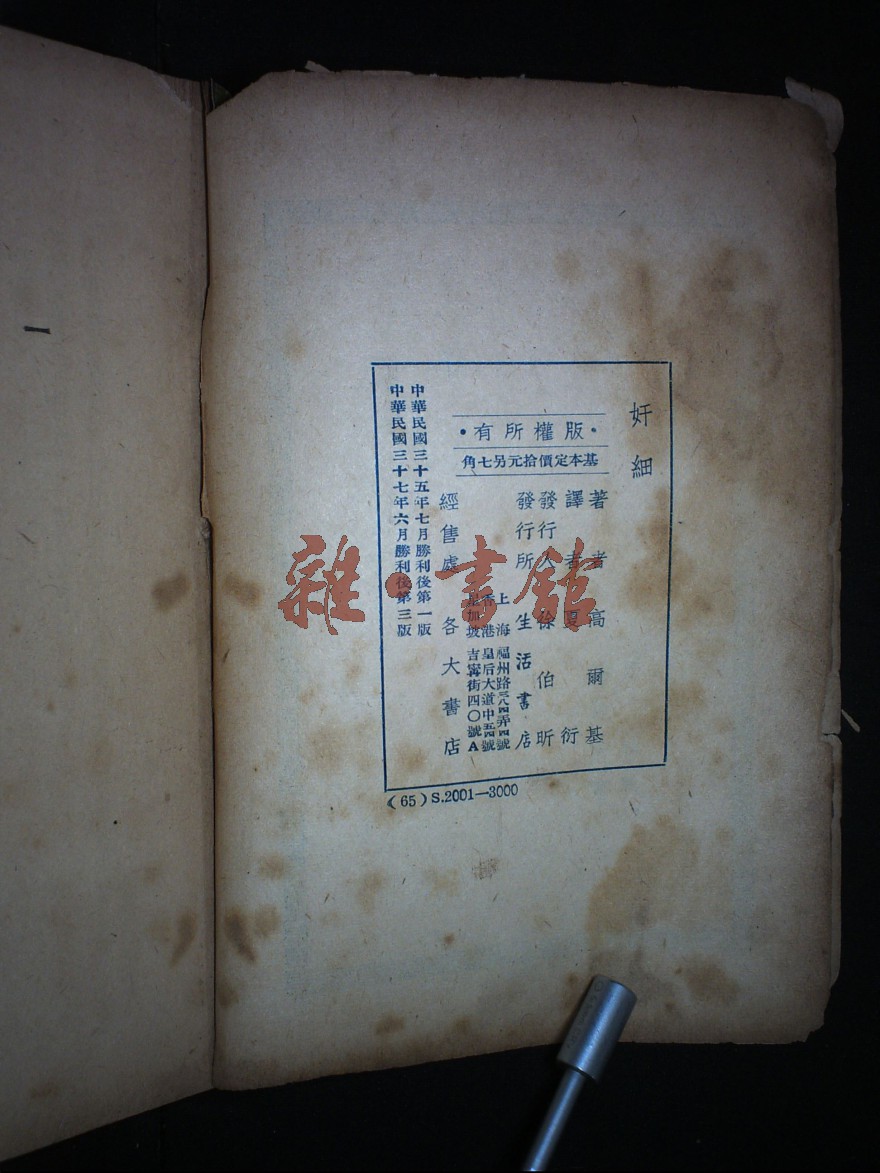 奸細
·版權所有·
基本定價拾元另七角
著者 高爾基
譯者 夏衍
發行人 徐伯昕
發行所 生活書店
上海福州路三八四弄四號
香港皇后大道中五四號
星加坡吉寧街四〇號A
經售處 各大書店
中華民國三十五年七月勝利後第一版
中華民國三十七年六月勝利後第三版
(65) S.2001—3000
雜·書館
一